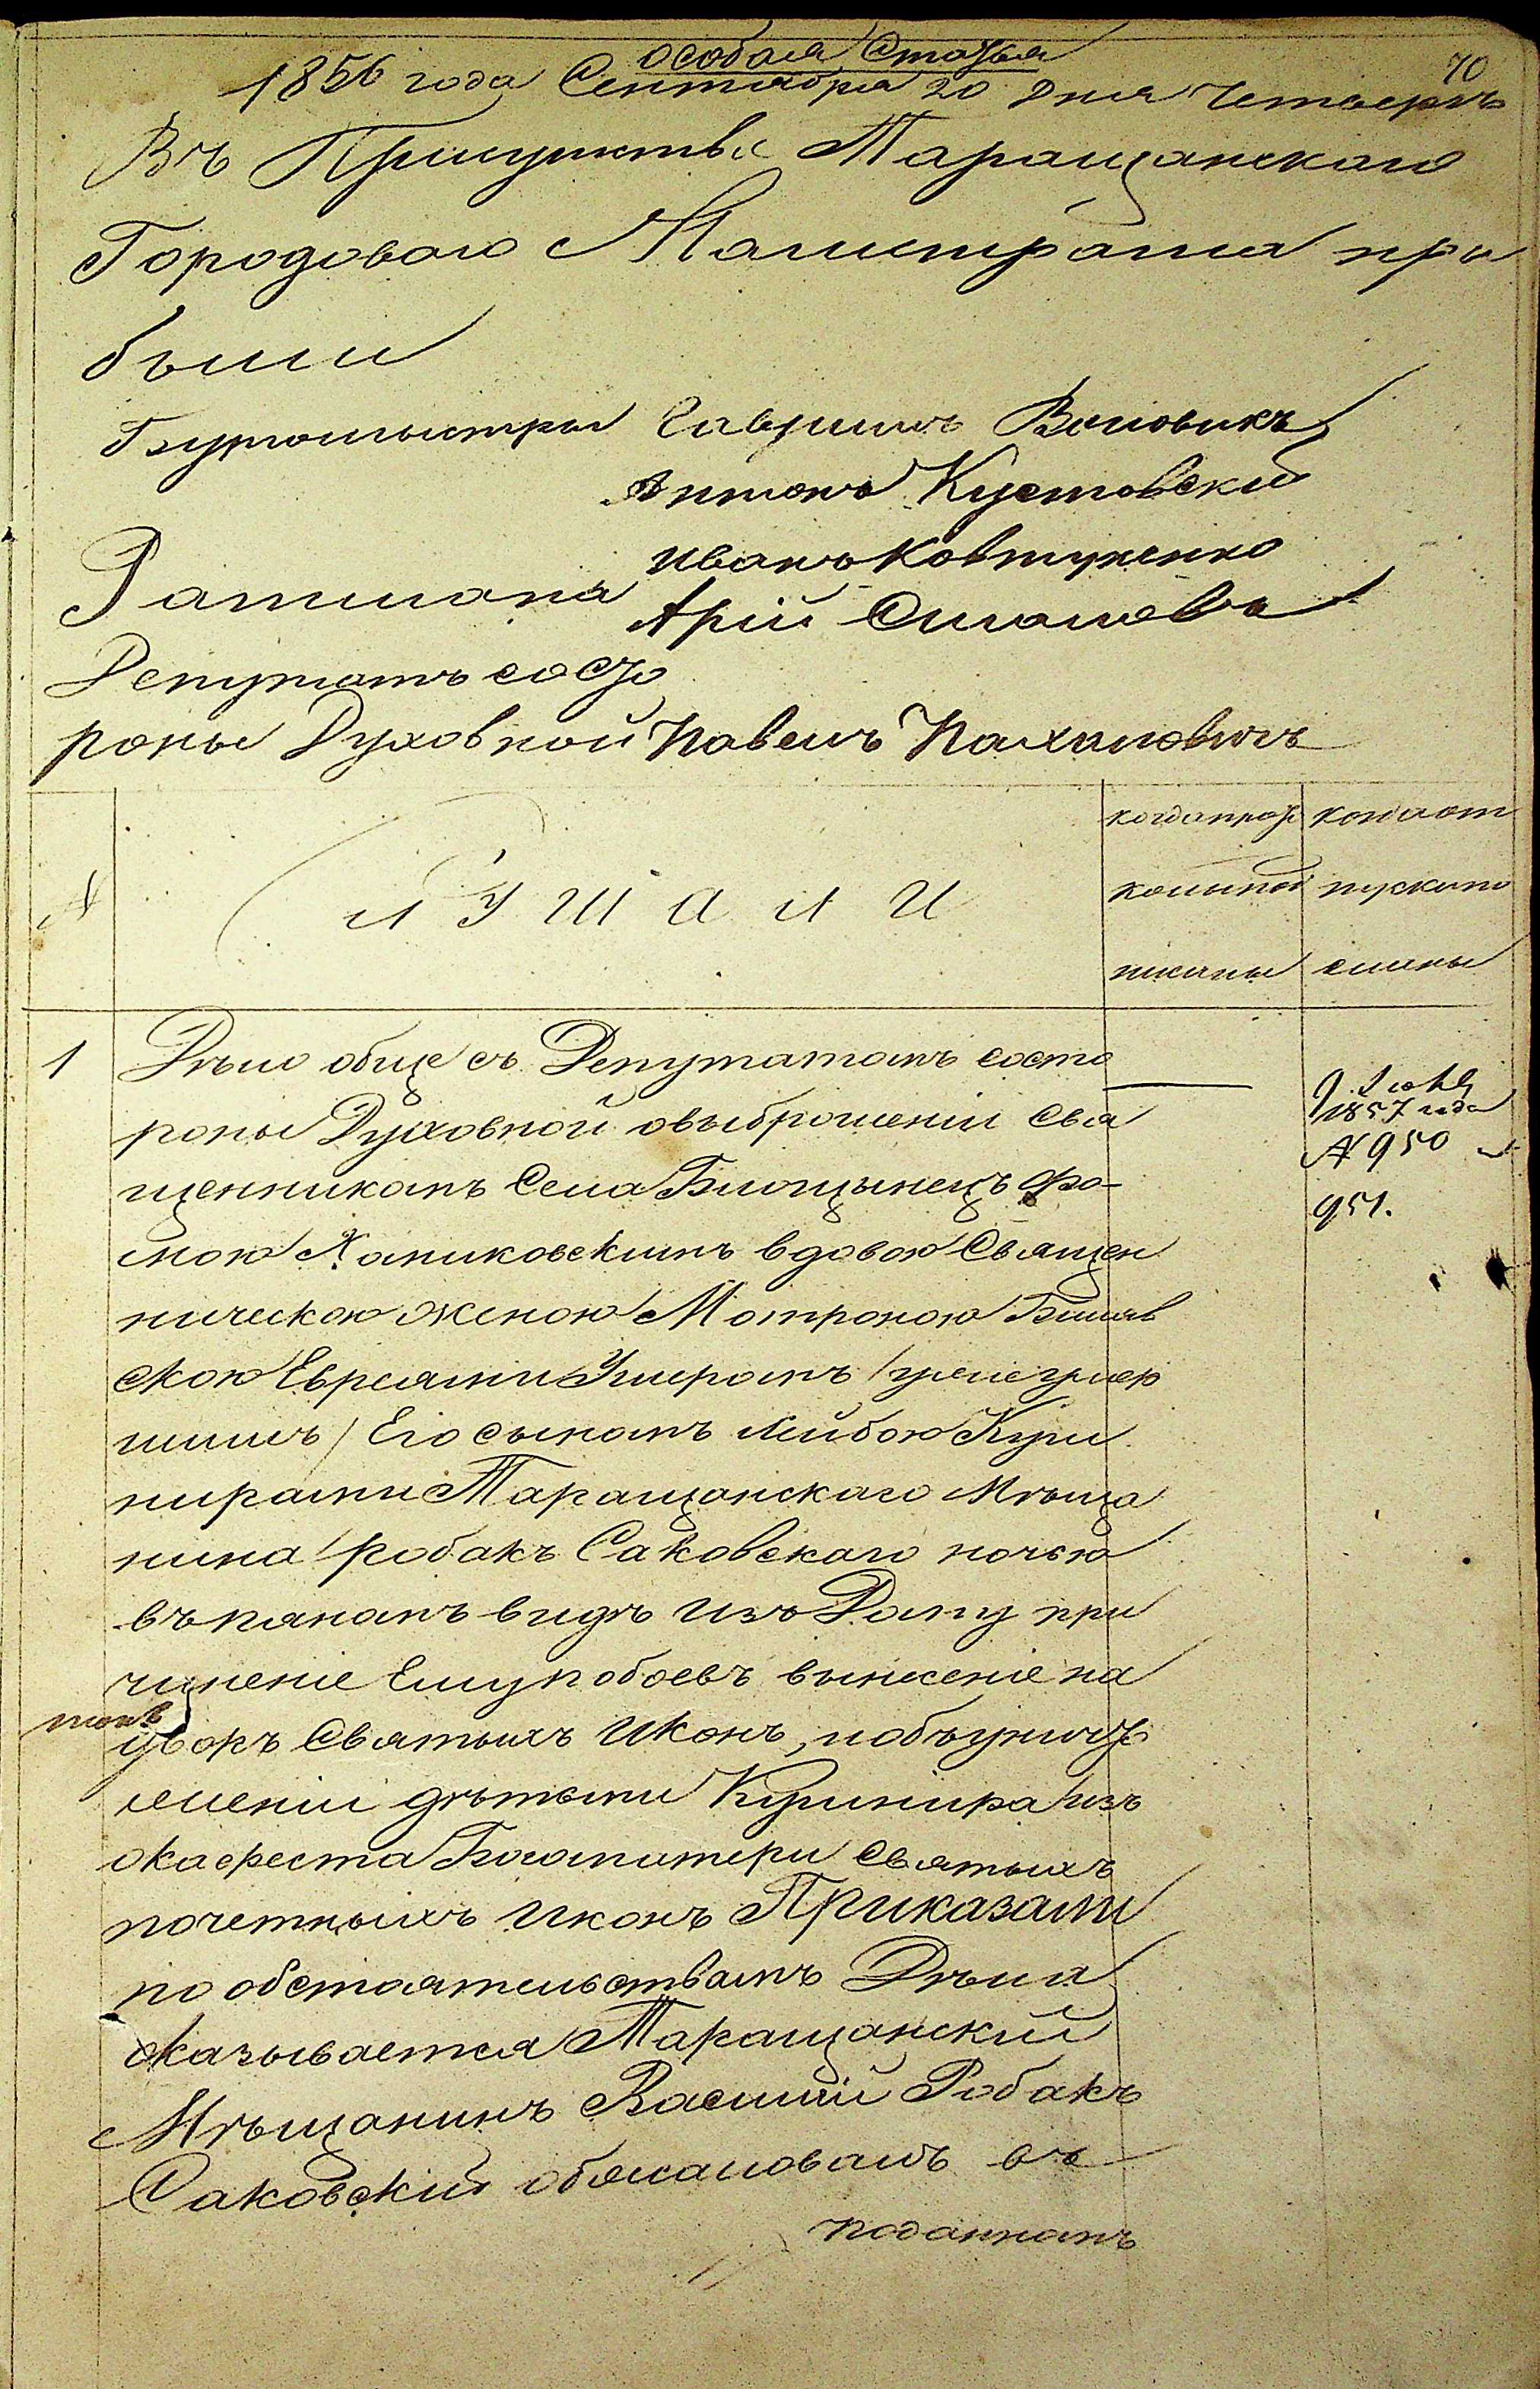 Особая Статья
70
1856 года Сентября 20 дня Четверкъ
Въ Присутствіе Таращанскаго
Городоваго Магистрата при
были
Бургомистры Гаврилъ Воловикъ
Антонъ Кустовскій
Иванъ Ковтуненко
Ратмана
Арій
Депутатъ состо
роны Духовной Павелъ Пахаловичъ
№
Слушали
когда прото
колы под
писаны
когда от
пуски по
сланы
1
Дѣло обще съ Депутатомъ состо
роны Духовной овыброшеніи Свя
щенникомъ Села Блощынецъ Фо-
мою Ханиковскимъ вдовою Священ
ническою женою Мотроною
скою Евреями Умеромъ /уже умер
шимъ/ Его сыномъ Лейбою Куш
нирами Таращанскаго Мѣща
нина Робакъ Саковскаго ночью
въ пянамъ видѣ изъ Дому при
чиненіе Ему побоевъ вынесеніе на
дворъ Святыхъ Иконъ, и обѣуничто
женіи дѣтьми Кушнира изъ
окафеста Богоматери Святыхъ
почетныхъ Иконъ Приказали
по обстоятельствамъ Дѣла
оказывается Таращанский
Мѣщанинъ Василій Робакъ
Саковскій обжаловалъ въ
поданномъ
9 Іюня
1857 года
№ 950
951.